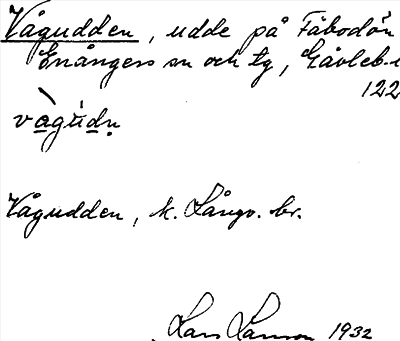 Vågudden, udde på Fäbodön
Enångers sn och tg, Gävleb.
122
Vågudden, k. Långv. br.
Lars Larsson 1932